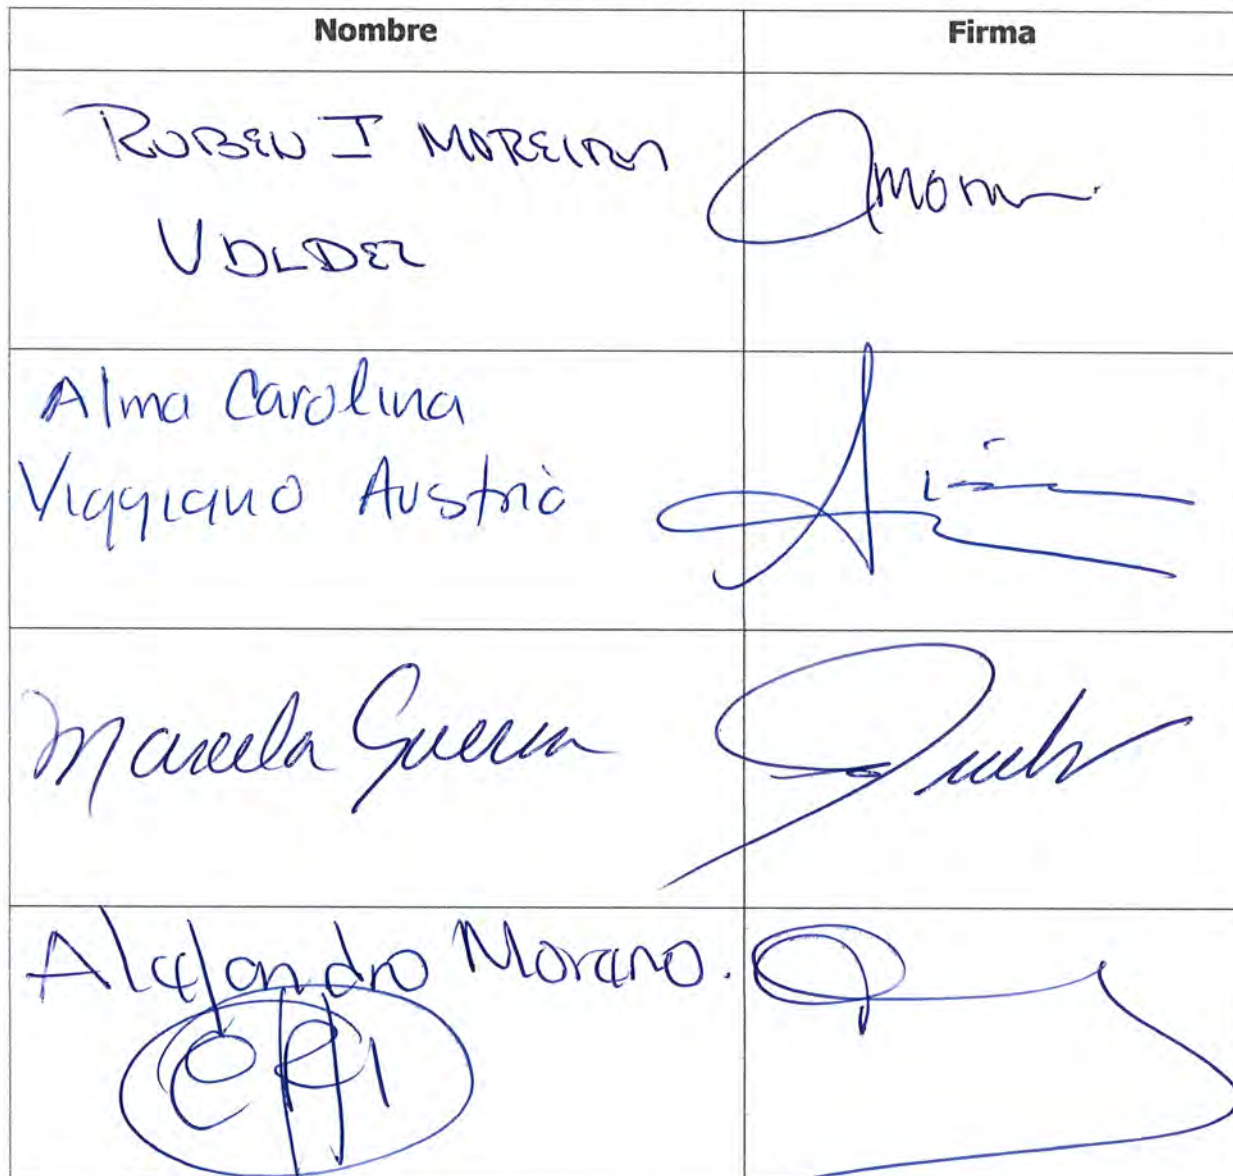 Nombre Firma
RUBEN I MOREIRA
VALDEZ
Alma Carolina
Viggiano Austria
Marcela Guerra
Alejandro Moreno.